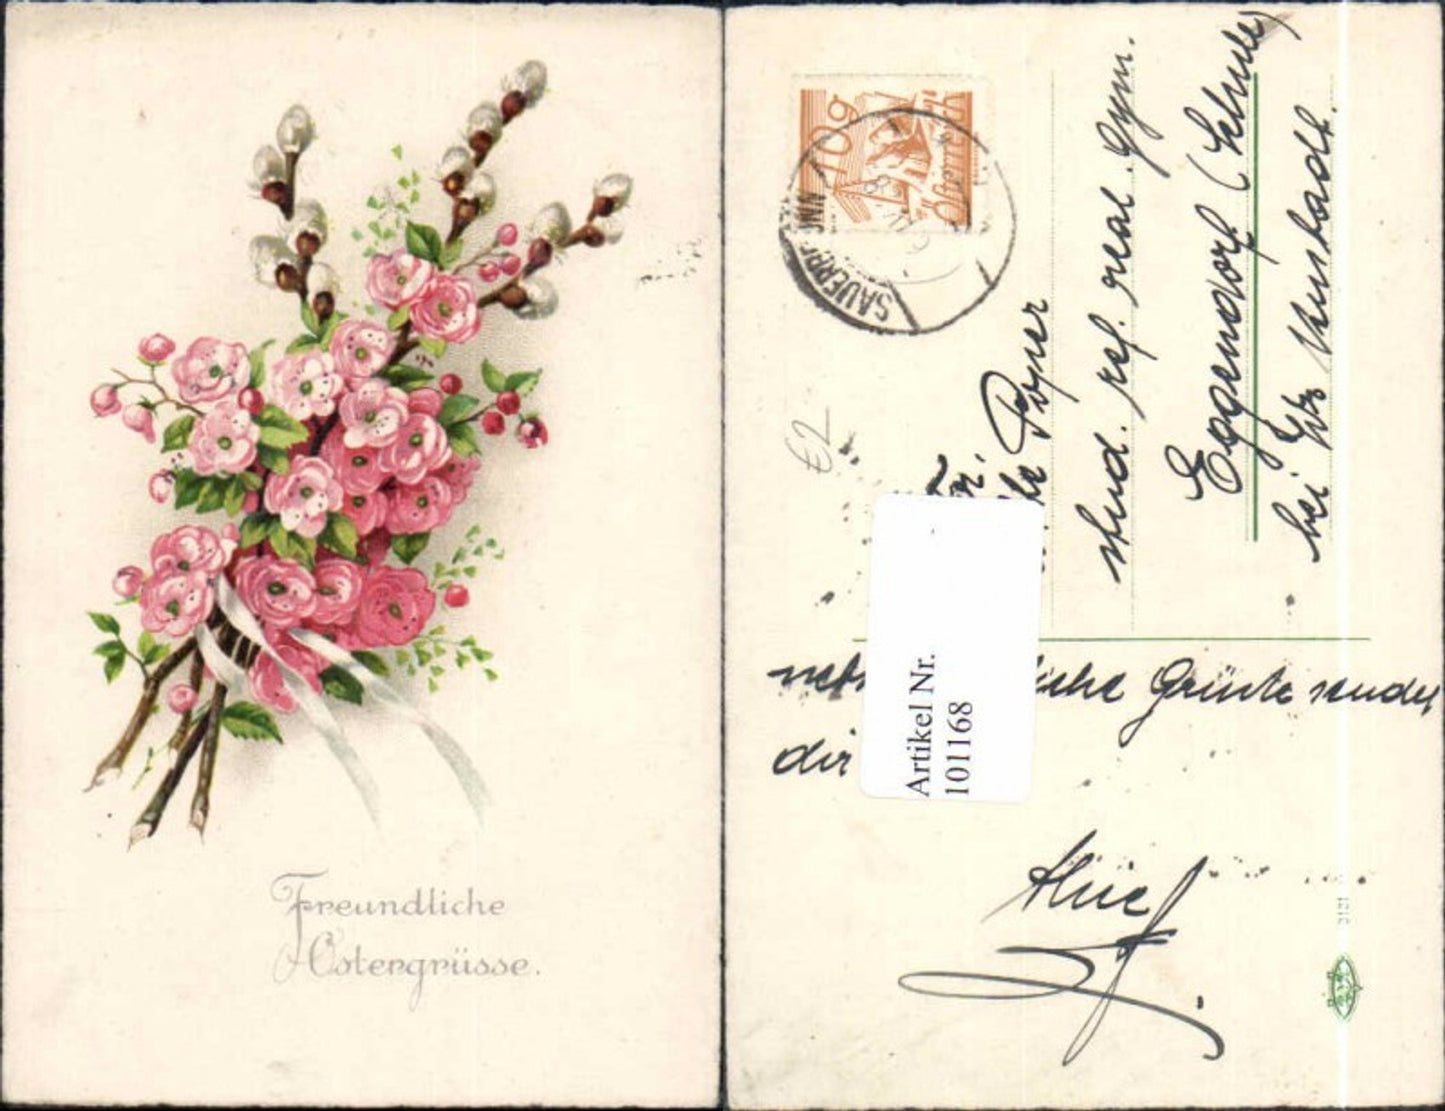 Freundliche
Ostergrüsse.
10g
Österreich
SAUERBRUNN
€2
stud. ref. real. Gym.
Eggendorf (Schule)
bei Wr. Neustadt.
Grüsse sendet
dir
Artikel Nr.
101168
3131